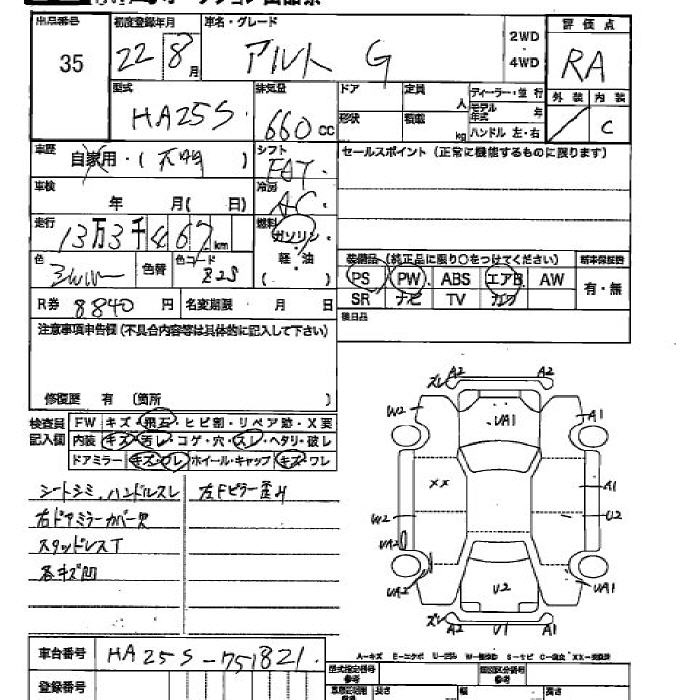 出品番号 初度登録年月 車名・グレード 評価点
35 22 8 月 アルト G 2WD ・ 4WD RA
型式 HA25S 排気量 660 CC
ドア 定員 人 ディーラー・並行
モデル年式 年
形状 積載 kg ハンドル 左・右
外装 内装
C
車歴 自家用・( 不明 ) シフト FAT
セールスポイント (正常に機能するものに限ります)
車検 年 月( 日) 冷房 AC
走行 13万3千 km 燃料 ガソリン・軽・油 ( )
色 色替 色コード Z2S
装備品 (純正品に限り○をつけてください) 新車保証書
PS PW ABS エアB AW 有・無
SR ナビ TV
R券 8840 円 名変期限 月 日
後日品
注意事項申告欄 (不具合内容等は具体的に記入して下さい)
修復歴 有 〔箇所 〕
検査員記入欄 FW キズ・飛石・ヒビ割・リペア跡・X要
内装 キズ・汚レ・コゲ・穴・スレ・ヘタリ・破レ
ドアミラー キズ・ワレ ホイール・キャップ キズ・ワレ
シートシミ、ハンドルスレ 左Fピラー歪み
右ドアミラーカバー欠
スタッドレスT
各キズ凹
ズレ A2 A2
W2 UA1 A1
XX A1
W2 U2
UA2
UA2 U2 UA1
ズレ A2 U1 A1
車台番号 HA25S-751821
A-キズ E-エクボ U-凹み W-補修跡 S-サビ C-腐食 XX-交換済
登録番号 型式指定番号 類別区分番号
長さ 幅 高さ